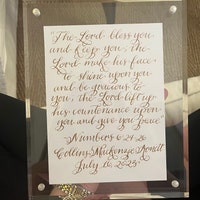 "The Lord bless you
and keep you, the
Lord make his face
to shine upon you
and be gracious to
you, the Lord lift up
his countenance upon
you and give you peace"
Numbers 6:24-26
Collins Mackenzie
July 16, 2023